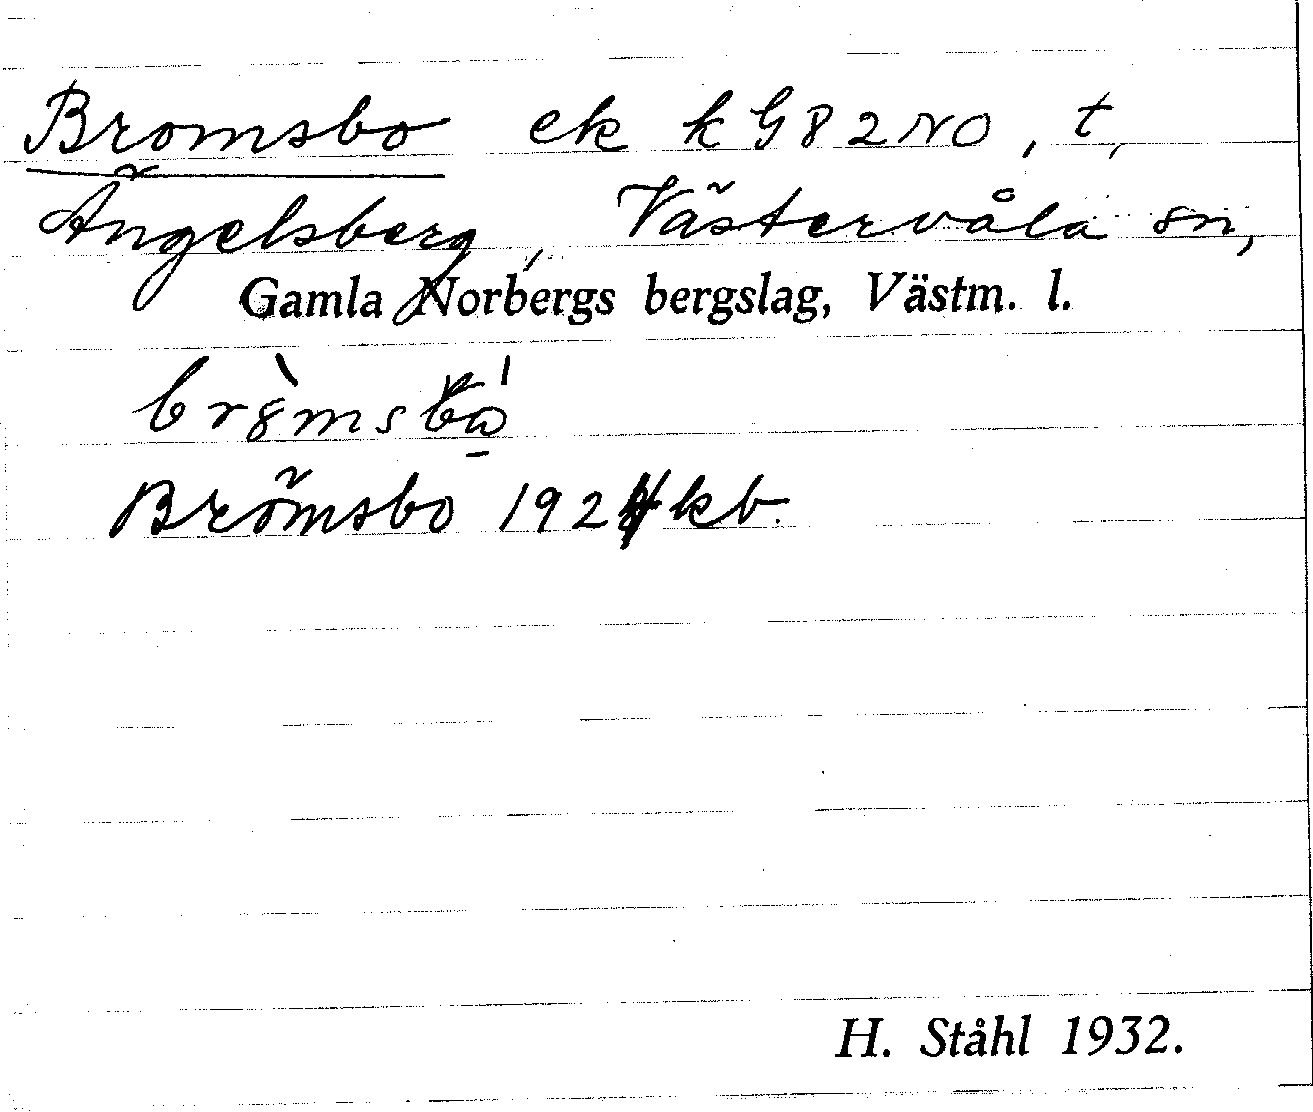 Bromsbo ek k G 8 2 NO, t,
Ängelsberg, Västervåla sn,
Gamla Norbergs bergslag, Västm. l.
Brömsbo 1924 kb.
H. Ståhl 1932.